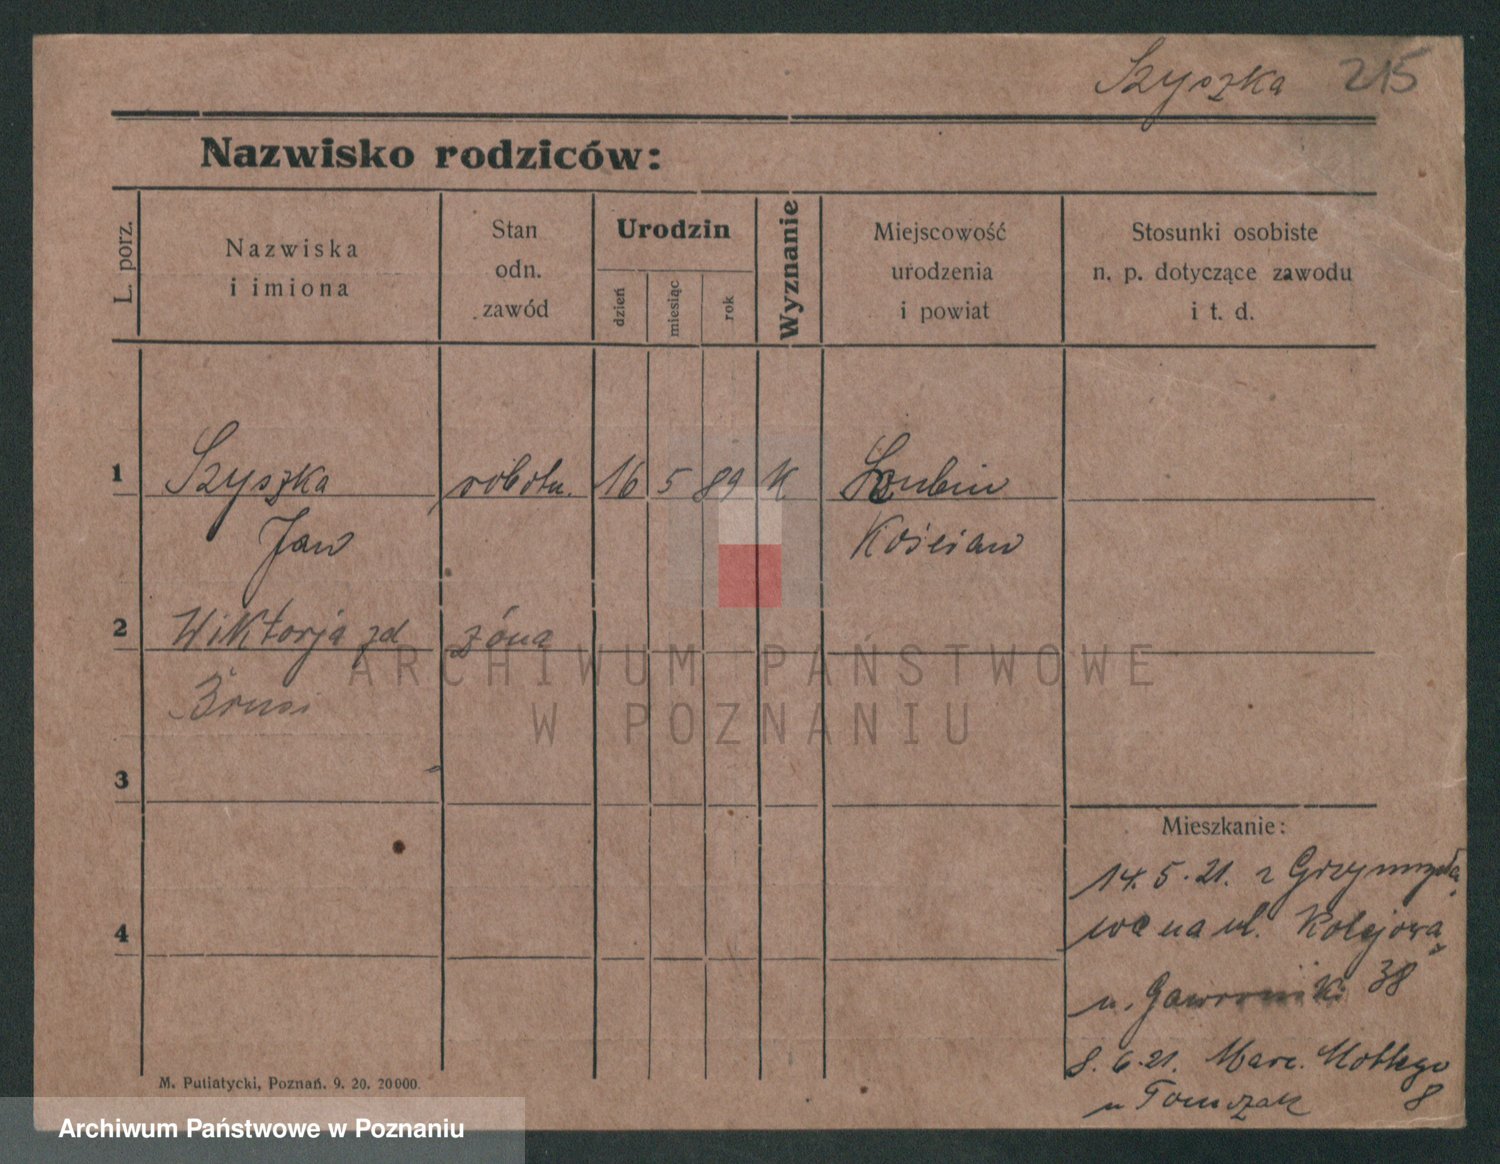 Szyszka 215
Nazwisko rodziców:
L. porz.
Nazwiska
i imiona
Stan
odn.
zawód
Urodzin
dzień
miesiąc
rok
Wyznanie
Miejscowość
urodzenia
i powiat
Stosunki osobiste
n. p. dotyczące zawodu
i t. d.
1 Szyszka robotn. 16 5 89 K Lubin
Jan Kościan
2 Wiktorja zd żona
3
4
Mieszkanie:
14.5.21. z
na ul. Kolejową
u. 38
8. 6. 21. Marc. Mottego
u Tomczak 8
M. Putiatycki, Poznań. 9. 20. 20000.
ARCHIWUM PAŃSTWOWE
W POZNANIU
Archiwum Państwowe w Poznaniu